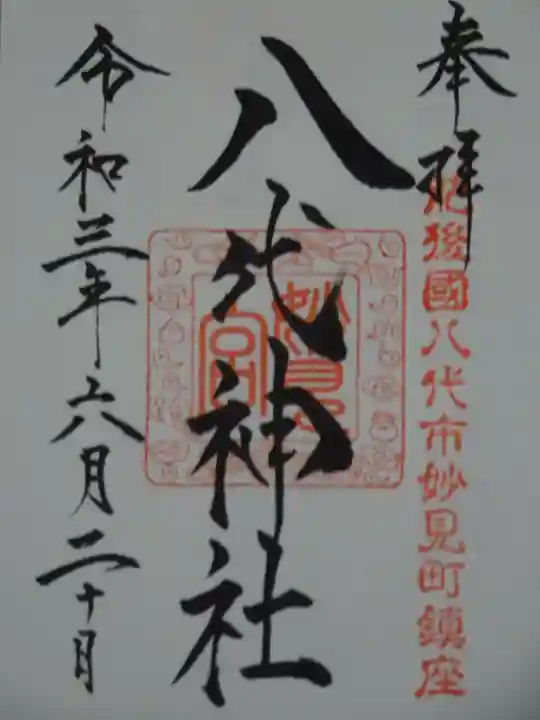 奉拝
肥後國八代市妙見町鎮座
八代神社
妙見宮
令和三年六月二十日